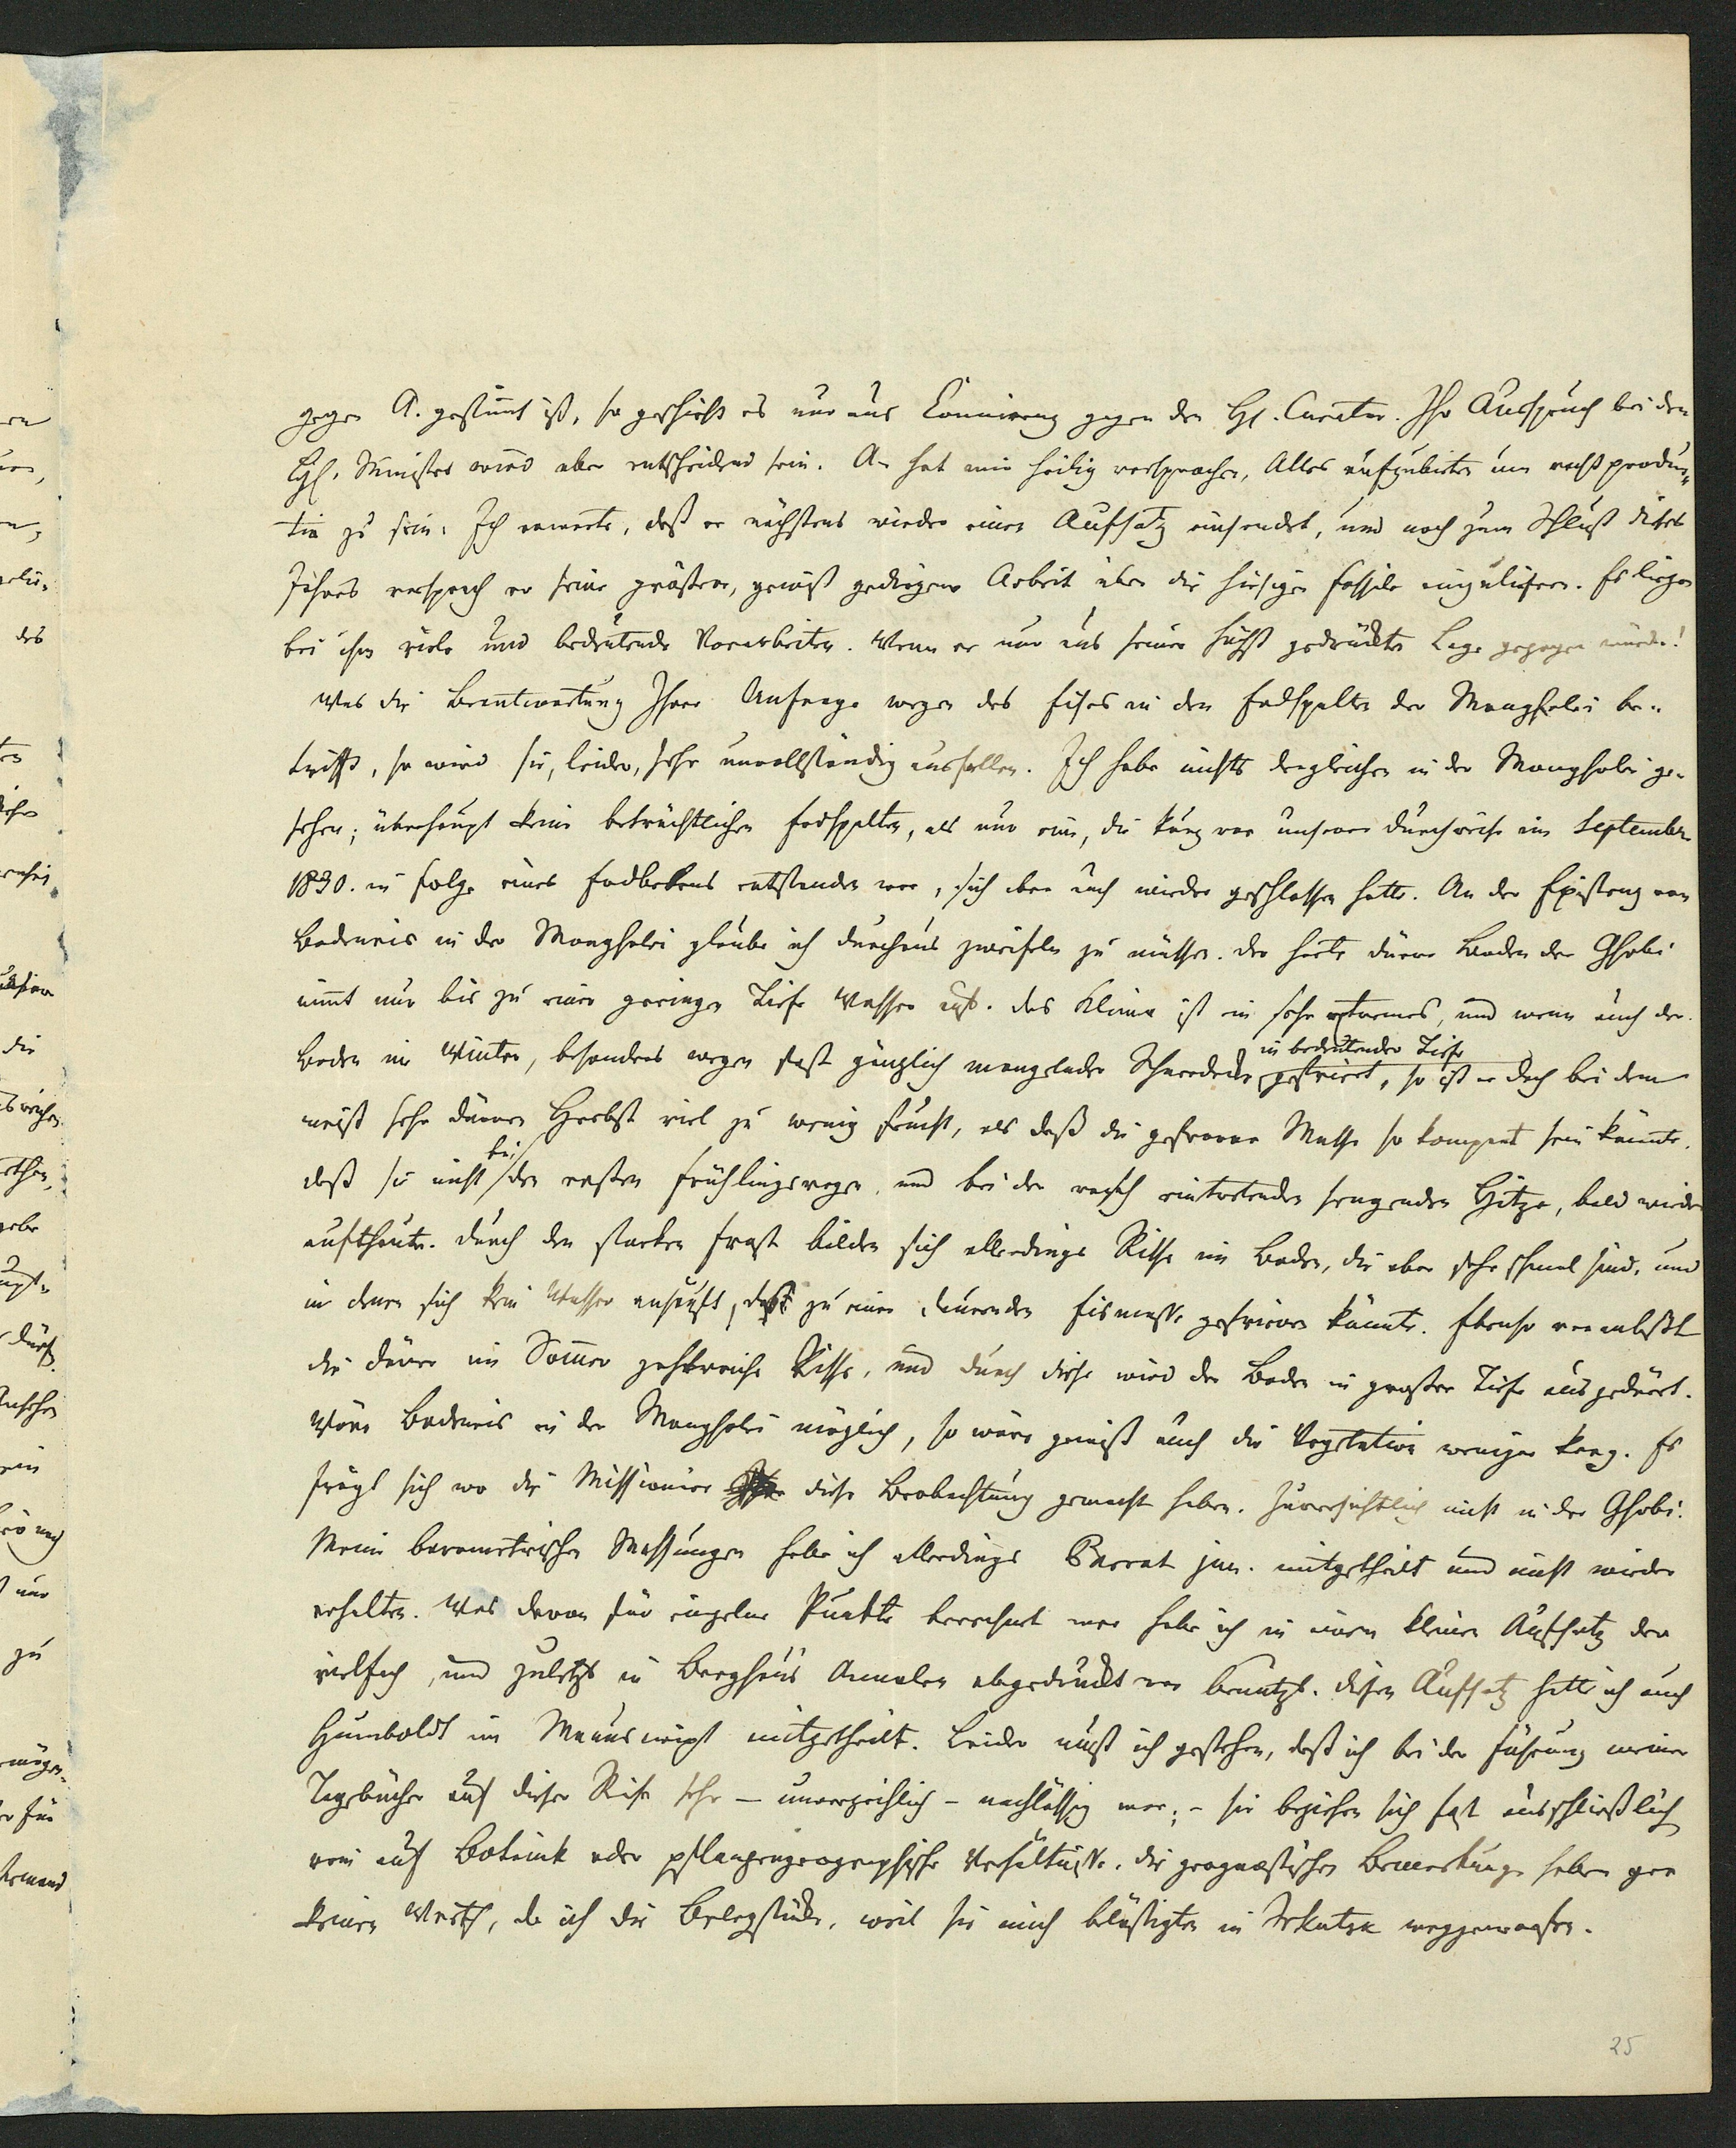 gegen A. gestimmt ist, so geschieht es nur aus Connivenz gegen den H. Curator. Ihr Ausspruch bei dem
H. Minister wird aber entscheidend sein. A. hat mir heilig versprochen, Alles aufzubieten um recht produc-
tiv zu sein. Ich erwarte, daß er nächstens wieder einen Aufsatz einsendet, und noch zum Schluß dieses
Jahres versprach er seine größere, gewiß gediegene Arbeit über die hiesigen Fossile einzuliefern. Es liegen
bei ihm viele und bedeutende Vorarbeiten. Wenn er nur aus seiner höchst gedrückten Lage gezogen würde!
Was die Beantwortung Ihrer Anfrage wegen des Eises in den Erdspalten der Mongholei be-
trifft, so wird sie, leider, sehr unvollständig ausfallen. Ich habe nichts dergleichen in der Mongholei ge-
sehen; überhaupt keine beträchtlichen Erdspalten, als nur eine, die kurz vor unserer Durchreise im September
1830. in Folge eines Erdbebens entstanden war, sich aber auch wieder geschlossen hatte. An der Existenz von
Bodeneis in der Mongholei glaube ich durchaus zweifeln zu müssen. Der harte dürre Boden der Ghobi
nimt nur bis zu einer geringen Tiefe Wasser auf. Das Klima ist ein sehr extremes, und wenn auch der
Boden im Winter, besonders wegen fast gänzlich mangelnder Schneedecke in bedeutender Tiefe gefriert, so ist er doch bei dem
meist sehr dürren Herbst viel zu wenig feucht, als daß die gefrorne Masse so kompact sein könnte,
daß sie nicht bei den ersten Frühlingsregen, und bei der rasch eintretenden sengenden Hitze, bald wieder
aufthaute. Durch den starken Frost bilden sich allerdings Risse im Boden, die aber sehr schmal sind, und
in denen sich kein Wasser anhäuft, das zu einer dauernden Eismasse gefrieren könnte. Ebenso veranlaßt
die Dürre im Sommer zahlreiche Risse, und durch diese wird der Boden in großer Tiefe ausgedörrt.
Wäre Bodeneis in der Mongholei möglich, so wäre gewiß auch die Vegetation weniger karg. Es
frägt sich wo die Missionäre diese Beobachtung gemacht haben. Zuversichtlich nicht in der Ghobi.
Meine barometrischen Messungen habe ich allerdings Parrot jun. mitgetheilt und nicht wieder
erhalten. Was davon für einzelne Punkte berechnet war habe ich in einem kleinen Aufsatz der
vielfach, und zuletzt in Berghaus Annalen abgedruckt war benutzt. Diesen Aufsatz hatte ich auch
Humboldt im Manuscript mitgetheilt. Leider muß ich gestehen, daß ich bei der Führung meiner
Tagebücher auf dieser Reise sehr – unverzeihlich – nachlässig war; – sie beziehen sich fast ausschließlich
rein auf Botanik oder pflanzengeographische Verhältnisse. Die geognostischen Bemerkungen haben gar
keinen Werth, da ich die Belegstücke, weil sie mich belästigten in Irkutzk weggeworfen.
25